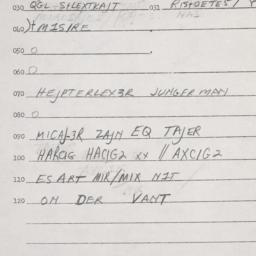 030 QGL-SILEXTKAIT 031 RISPOETES/
040 )+MISIRE
050 O
060 O
070 HEJPTERLEX3R JUNGERMAN
080 O
090 MICAJ-3R ZAJN EQ TAJER
100 HARCIG HACIG2 xx // AXCIG2
110 ES ART MIR/MIX NIT
120 OM DER VANT